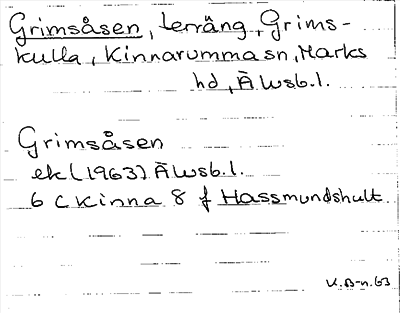 Grimsåsen, terräng, Grims-
kulla, Kinnarumma sn, Marks
hd, Älvsb. l.
Grimsåsen
ek (1963) Älvsb. l.
6 C Kinna 8 f Hassmundshult.
K.B-n. 63